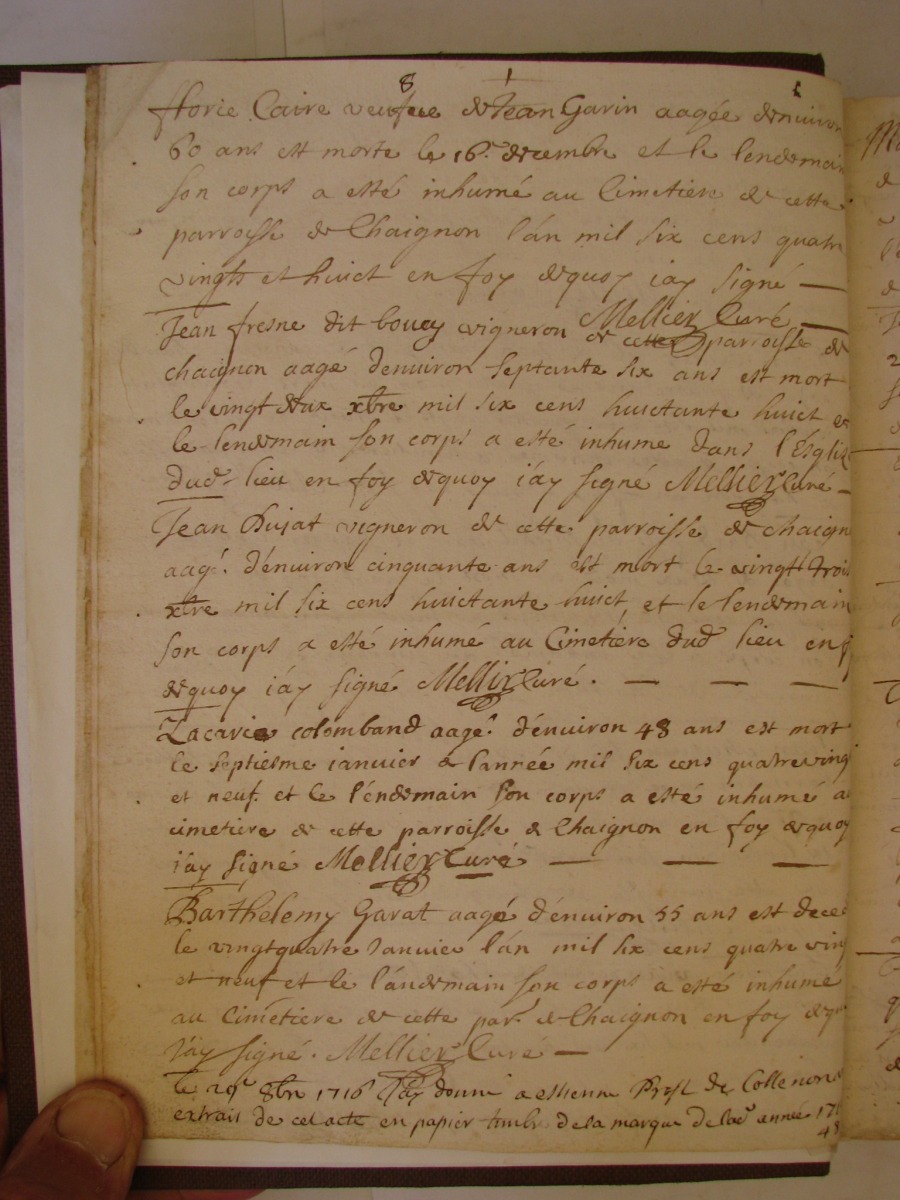 8
fforie Caire veufve de Jean Garin aagée denuiron
60 ans est morte le 16e decembre et le lendemain
son corps a esté inhumé au Cimetiere de cette
parroisse de Chaignon l'an mil six cens quatre
vingts et huict en foy dequoy iay signé
Mellier Curé
Jean fresne dit bouey vigneron de cette parroisse de
chaignon aagé denuiron septante six ans est mort
le vingt deux xbre mil six cens huictante huict et
le lendemain son corps a esté inhumé dans l'Esglise
dud lieu en foy dequoy i'ay signé Mellier Curé
Jean Dujat vigneron de cette parroisse de chaign
aagé d'enuiron cinquante ans est mort le vingt trois
xbre mil six cens huictante huict, et le lendemain
son corps a esté inhumé au Cimetiere dud lieu en f
dequoy i'ay signé Mellier Curé.
Zacarie colomband aagé d'enuiron 48 ans est mort
le septiesme ianuier de l'année mil six cens quatre ving
et neuf. et le l'endemain son corps a esté inhumé a
cimetiere de cette parroisse de Chaignon en foy dequoy
i'ay signé Mellier Curé
Barthelemy Garat aagé d'enuiron 55 ans est dece
le vingtquatre Ianuier l'an mil six cens quatre ving
et neuf et le l'andemain son corps a esté inhumé
au Cimetiere de cette par. de Chaignon en foy dequ
i'ay signé. Mellier Curé
le 29e 8bre 1716 Jay donné a estienne de Collenon
extrait de cet acte en papier timbré de la marque de lad année 17
48